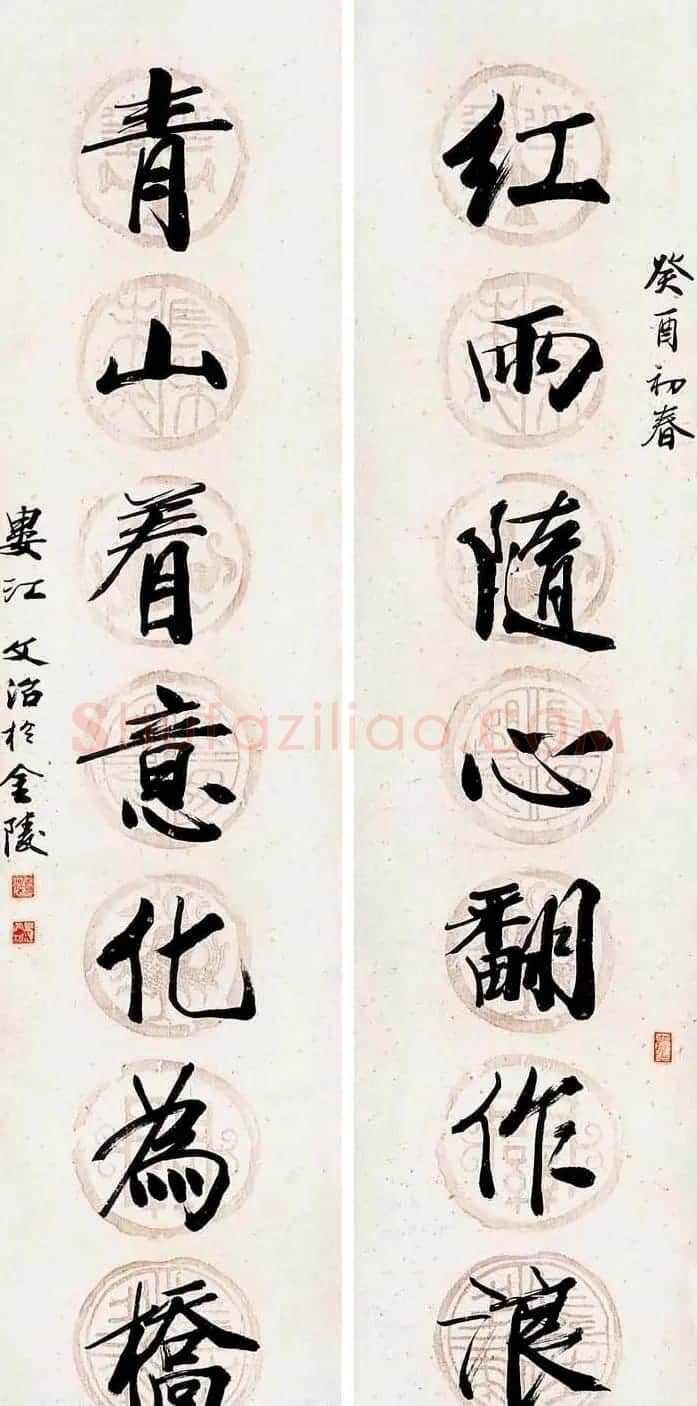 癸酉初春
红雨隨心翻作浪
青山着意化為橋
婁江文治於金陵
Shufaziliao.COM